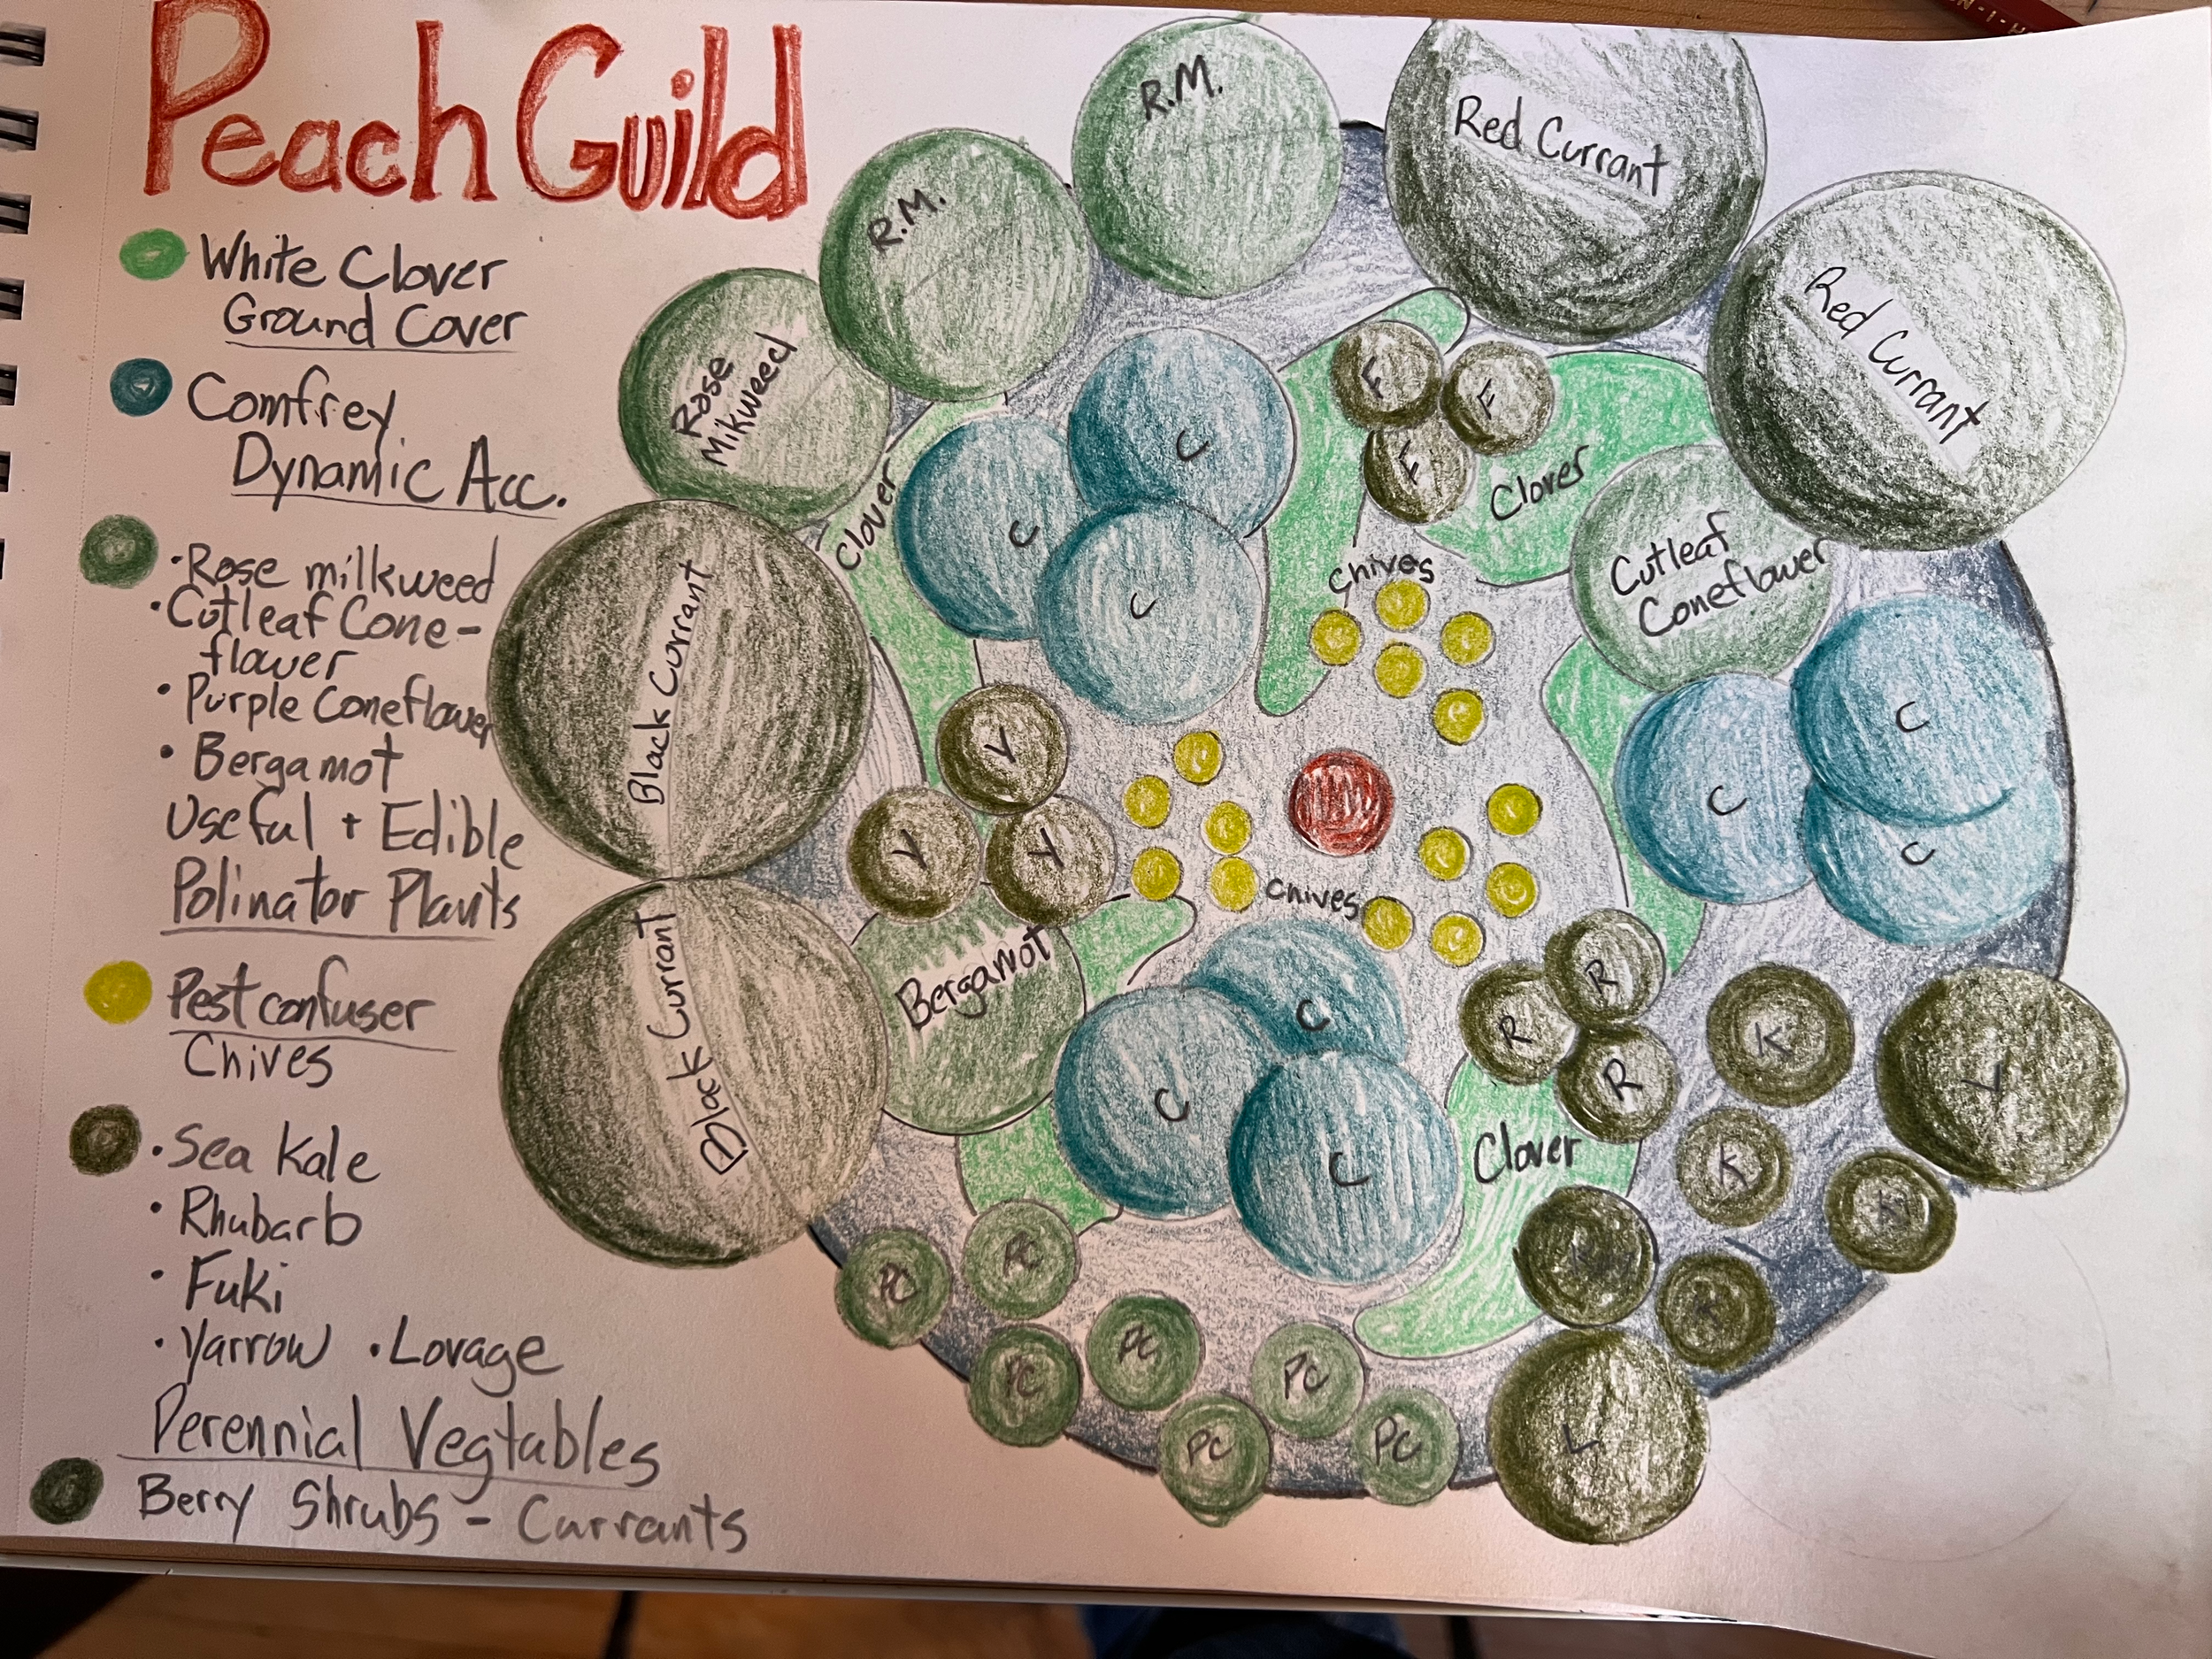 Peach Guild
White Clover
Ground Cover
Comfrey
Dynamic Acc.
• Rose milkweed
• Cutleaf Cone-
flower
• Purple Coneflower
• Bergamot
Useful + Edible
Polinator Plants
Pest confuser
Chives
• Sea Kale
• Rhubarb
• Fuki
• Yarrow • Lovage
Perennial Vegtables
Berry Shrubs - Currants
R.M.
R.M.
Rose
Mikweed
Red Currant
Red Currant
Black Currant
Black Currant
Clover
C
C
C
F
F
F
Clover
Chives
Cutleaf
Coneflower
C
C
C
Y
Y
Y
Chives
Bergamot
C
C
C
R
R
R
Clover
K
K
K
K
L
PC
PC
PC
PC
PC
PC
PC